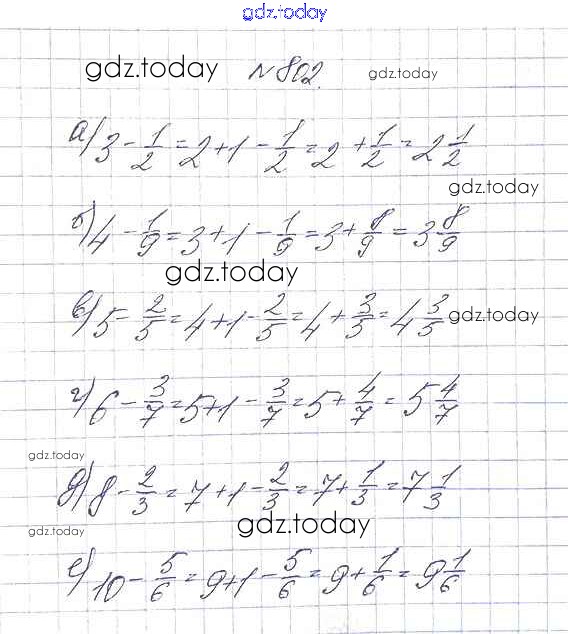 gdz.today
gdz.today №802. gdz.today
а) 3 - 1/2 = 2 + 1 - 1/2 = 2 + 1/2 = 2 1/2
gdz.today
б) 4 - 1/9 = 3 + 1 - 1/9 = 3 + 8/9 = 3 8/9
gdz.today
в) 5 - 2/5 = 4 + 1 - 2/5 = 4 + 3/5 = 4 3/5 gdz.today
г) 6 - 3/7 = 5 + 1 - 3/7 = 5 + 4/7 = 5 4/7
gdz.today
д) 8 - 2/3 = 7 + 1 - 2/3 = 7 + 1/3 = 7 1/3
gdz.today gdz.today
е) 10 - 5/6 = 9 + 1 - 5/6 = 9 + 1/6 = 9 1/6